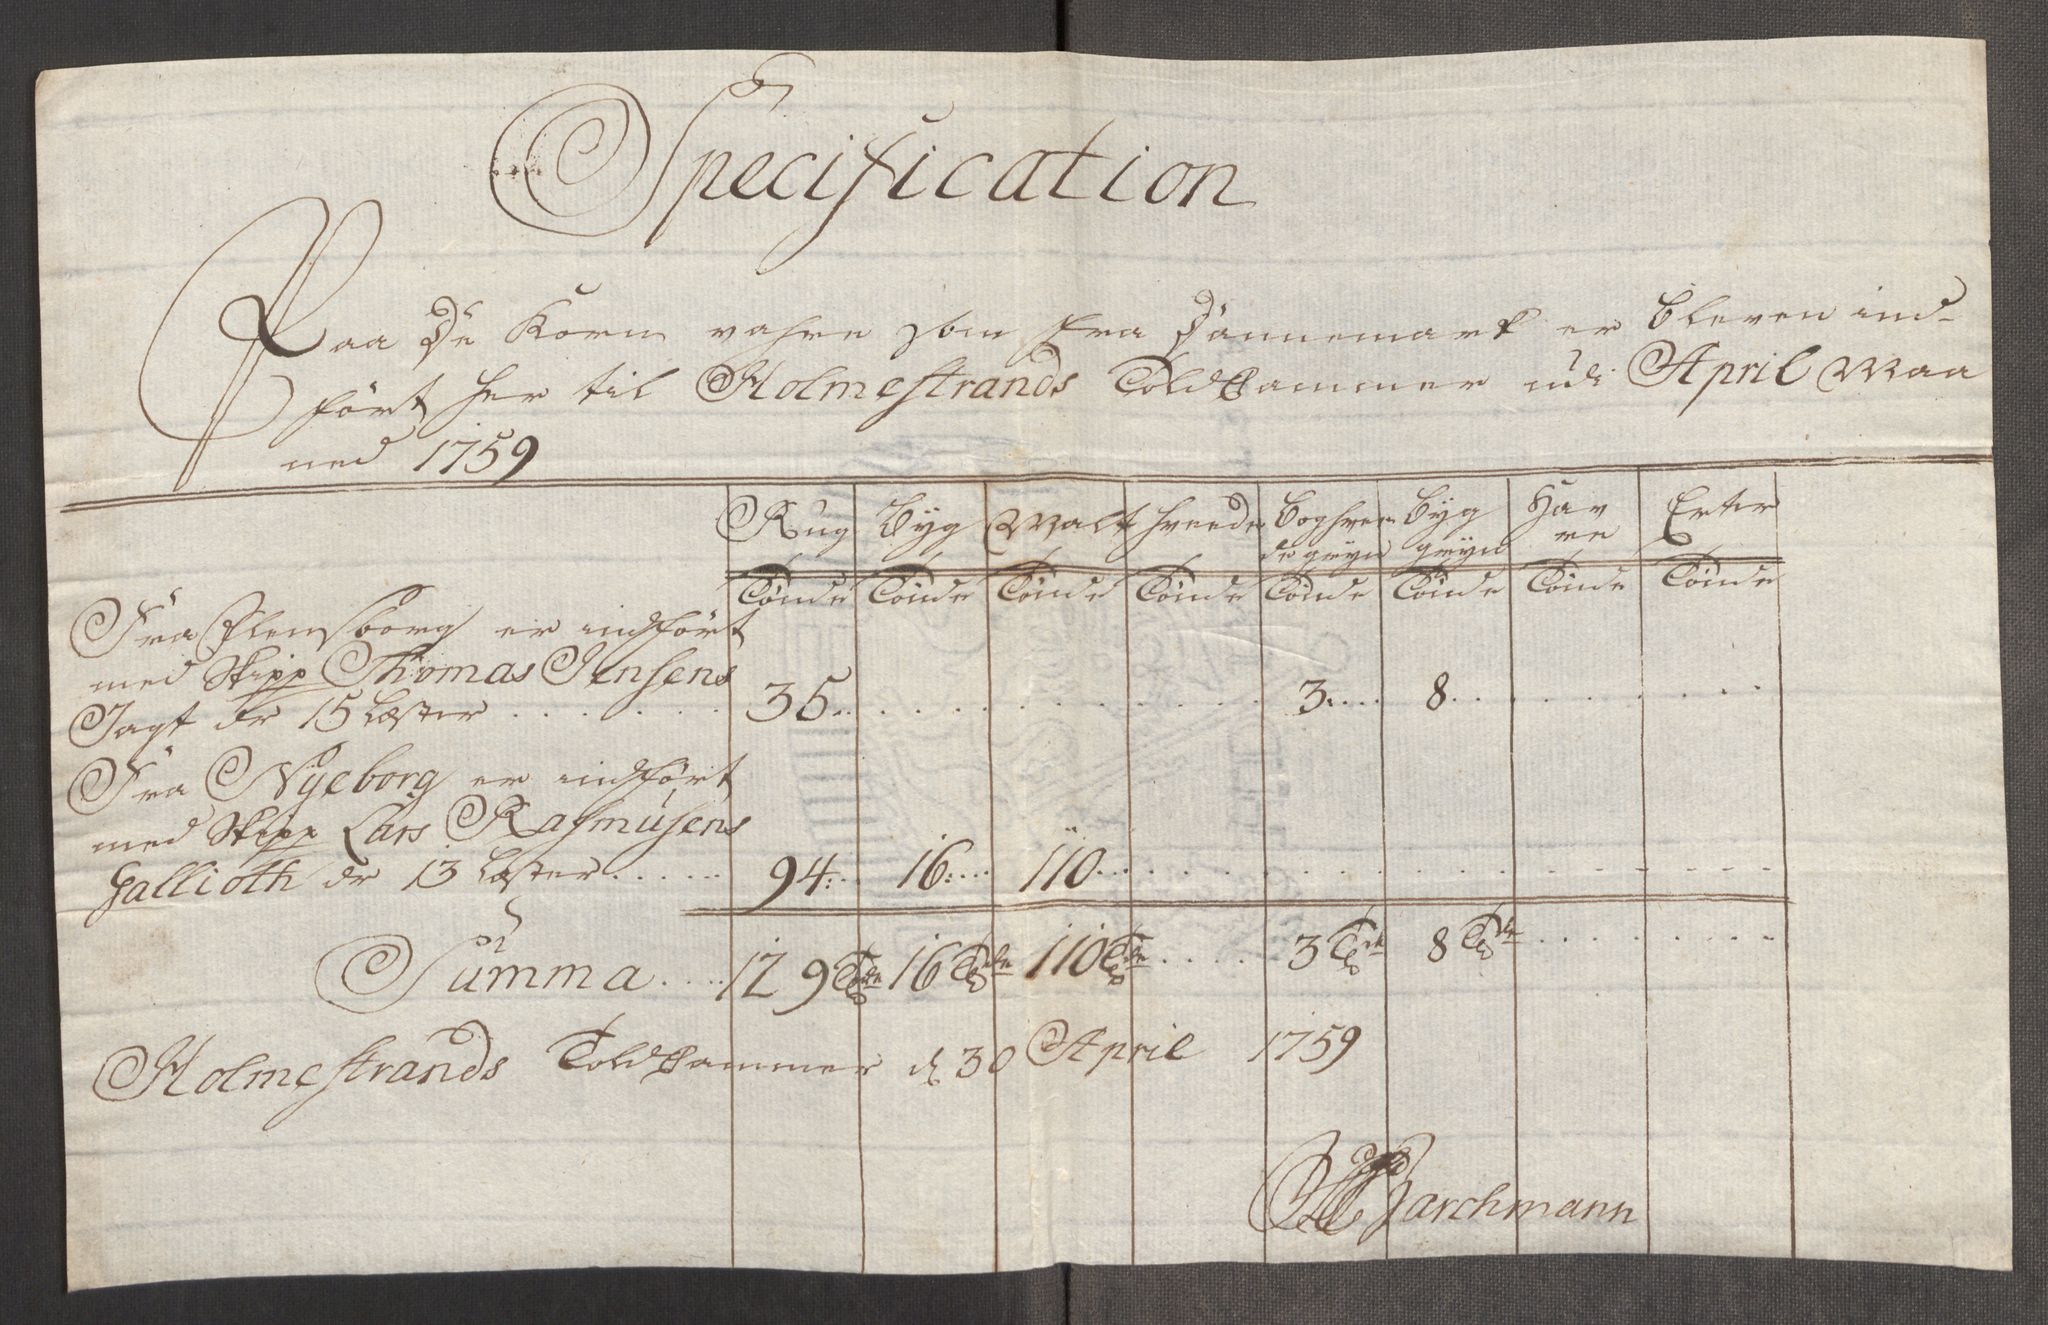 Specification
Paa De Korn vahre som fra Dannemark er bleven ind-
ført her til Holmestrands Toldkammer udi April Maa
ned 1759
Rug Byg Malt Hveede Boghvee Byg Hav Erter
de gryn gryn re
Tönde Tönde Tönde Tönde Tönde Tönde Tönde Tönde
Fra Flensborg er indført
med Skipp Thomas Jensens
Jagt dr 15 Læster . . . . . . 35 . . . . . 3 . . . . 8 . . . . .
Fra Nyeborg er indført
med Skipp Lars Rasmusens
Gallioth dr 13 Læster . . . . . 94 . . 16 . . . . 110 . . . . .
Summa . . . . 129 Tde 16 Tde 110 Tde . . . . 3 Tde 8 Tde . . . . .
Holmestrands Toldkammer d 30 April 1759